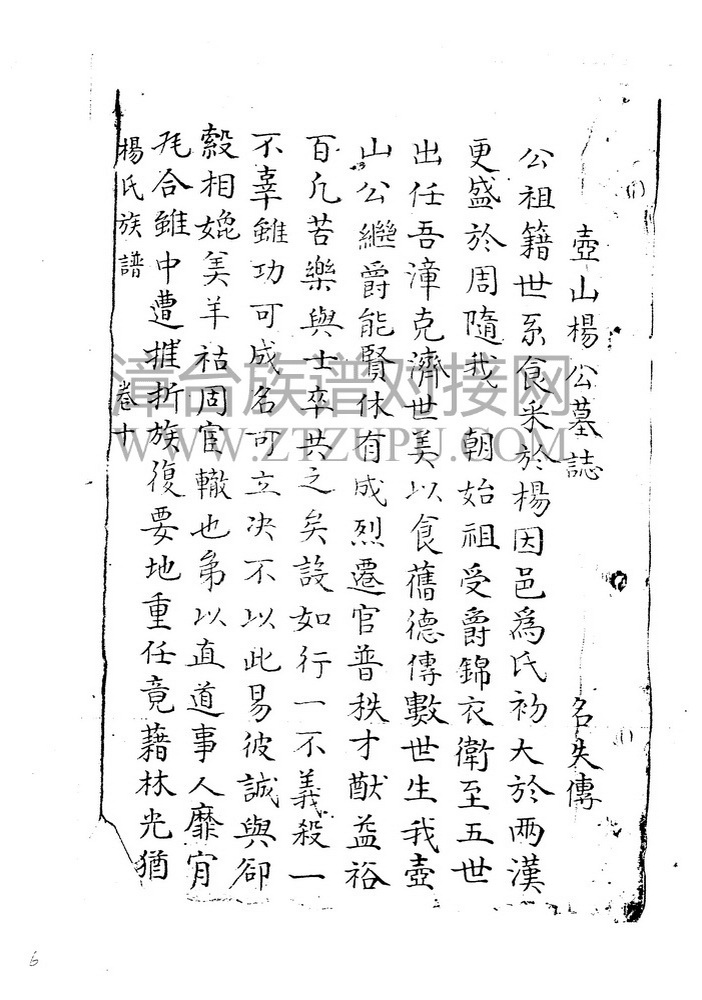 壺山楊公墓誌 名失傳
公祖籍世系食采於楊因邑爲氏初大於两漢
更盛於周隨我 朝始祖受爵錦衣衛至五世
出任吾漳克濟世美以食舊德傳數世生我壺
山公繼爵能賢休有成烈遷官晋秩才猷益裕
百凡苦樂與士卒共之矣設如行一不義殺一
不辜雖功可成名可立决不以此易彼誠與郤
縠相媲美羊祜同官轍也弟以直道事人靡有
苟合雖中遭摧折族復要地重任竟藉林光猶
楊氏族譜 卷十
漳台族谱对接网
WWW.ZTZUPU.COM
6